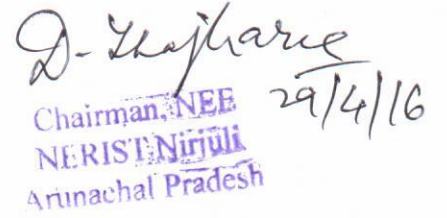 D.
29/4/16
Chairman, NEE
NERIST Nirjuli
Arunachal Pradesh